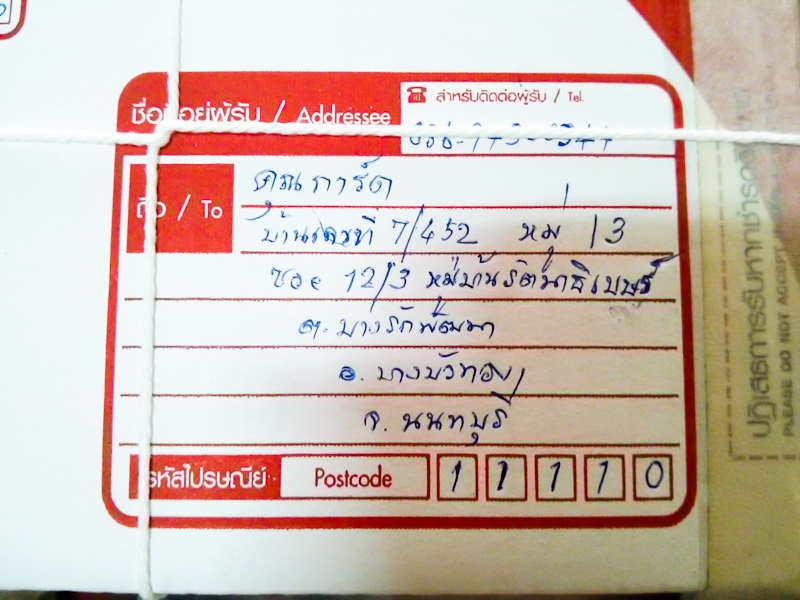 ชื่อที่อยู่ผู้รับ / Addressee
สำหรับติดต่อผู้รับ / Tel.
ถึง / To
คุณการ์ด
บ้านเลขที่ 7/452 หมู่ 13
ซอย 12/3 หมู่บ้านรัตนาธิเบษร์
ต. บางรักพัฒนา
อ. บางบัวทอง
จ. นนทบุรี
รหัสไปรษณีย์ Postcode 1 1 1 1 0
ปฏิเสธการรับหากชำรุด
PLEASE DO NOT ACCEPT